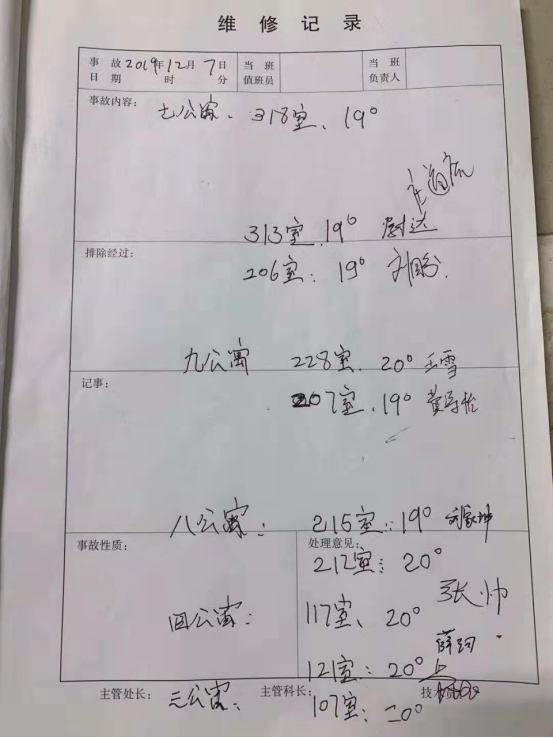 维修记录
事故日期 2019年12月7日 时 分 当班值班员 当班负责人
事故内容： 七公寓、318室、19°
313室、19° 尉达
排除经过：
206室：19° 刘盼
九公寓 228室、20° 王雪
记事：
207室、19°
八公寓： 215室：19°
事故性质： 处理意见：
212室：20°
张帅
四公寓： 117室、20°
薛
121室：20°
主管处长： 主管科长： 技术
三公寓： 107室：20°